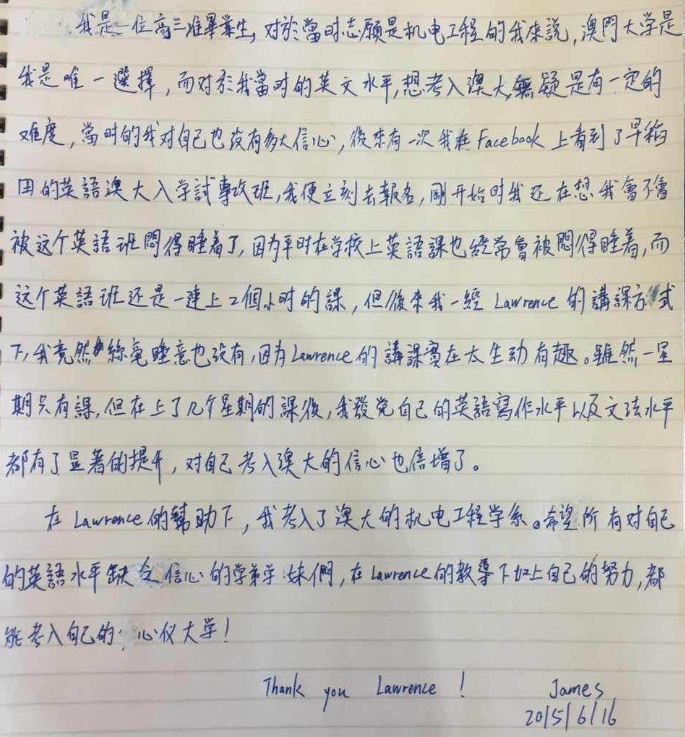 我是一位高三准畢業生,對於當时志願是机电工程的我來說,澳門大学是
我是唯一選擇,而对於我當时的英文水平,想考入澳大,無疑是有一定的
难度,當时的我对自己也没有多大信心,後來有一次我在Facebook上看到了早稻
田的英語澳大入学試專攻班,我便立刻去報名,剛开始时我还在想我會不會
被这个英語班悶得睡着了,因为平时在学校上英語課也經常會被悶得睡着,而
这个英語班还是一連上2個小时的課,但後來我一經Lawrence的講課方式
下,我竟然絲毫睡意也没有,因为Lawrence的講課實在太生动有趣。雖然一星
期只有課,但在上了几个星期的課後,我發觉自己的英語寫作水平以及文法水平
都有了显著的提升,对自己考入澳大的信心也倍增了。
在Lawrence的幫助下,我考入了澳大的机电工程学系。希望所有对自己
的英語水平缺乏信心的学弟学妹們,在Lawrence的教導下加上自己的努力,都
能考入自己的心仪大学!
Thank you Lawrence !
James
2015/6/16